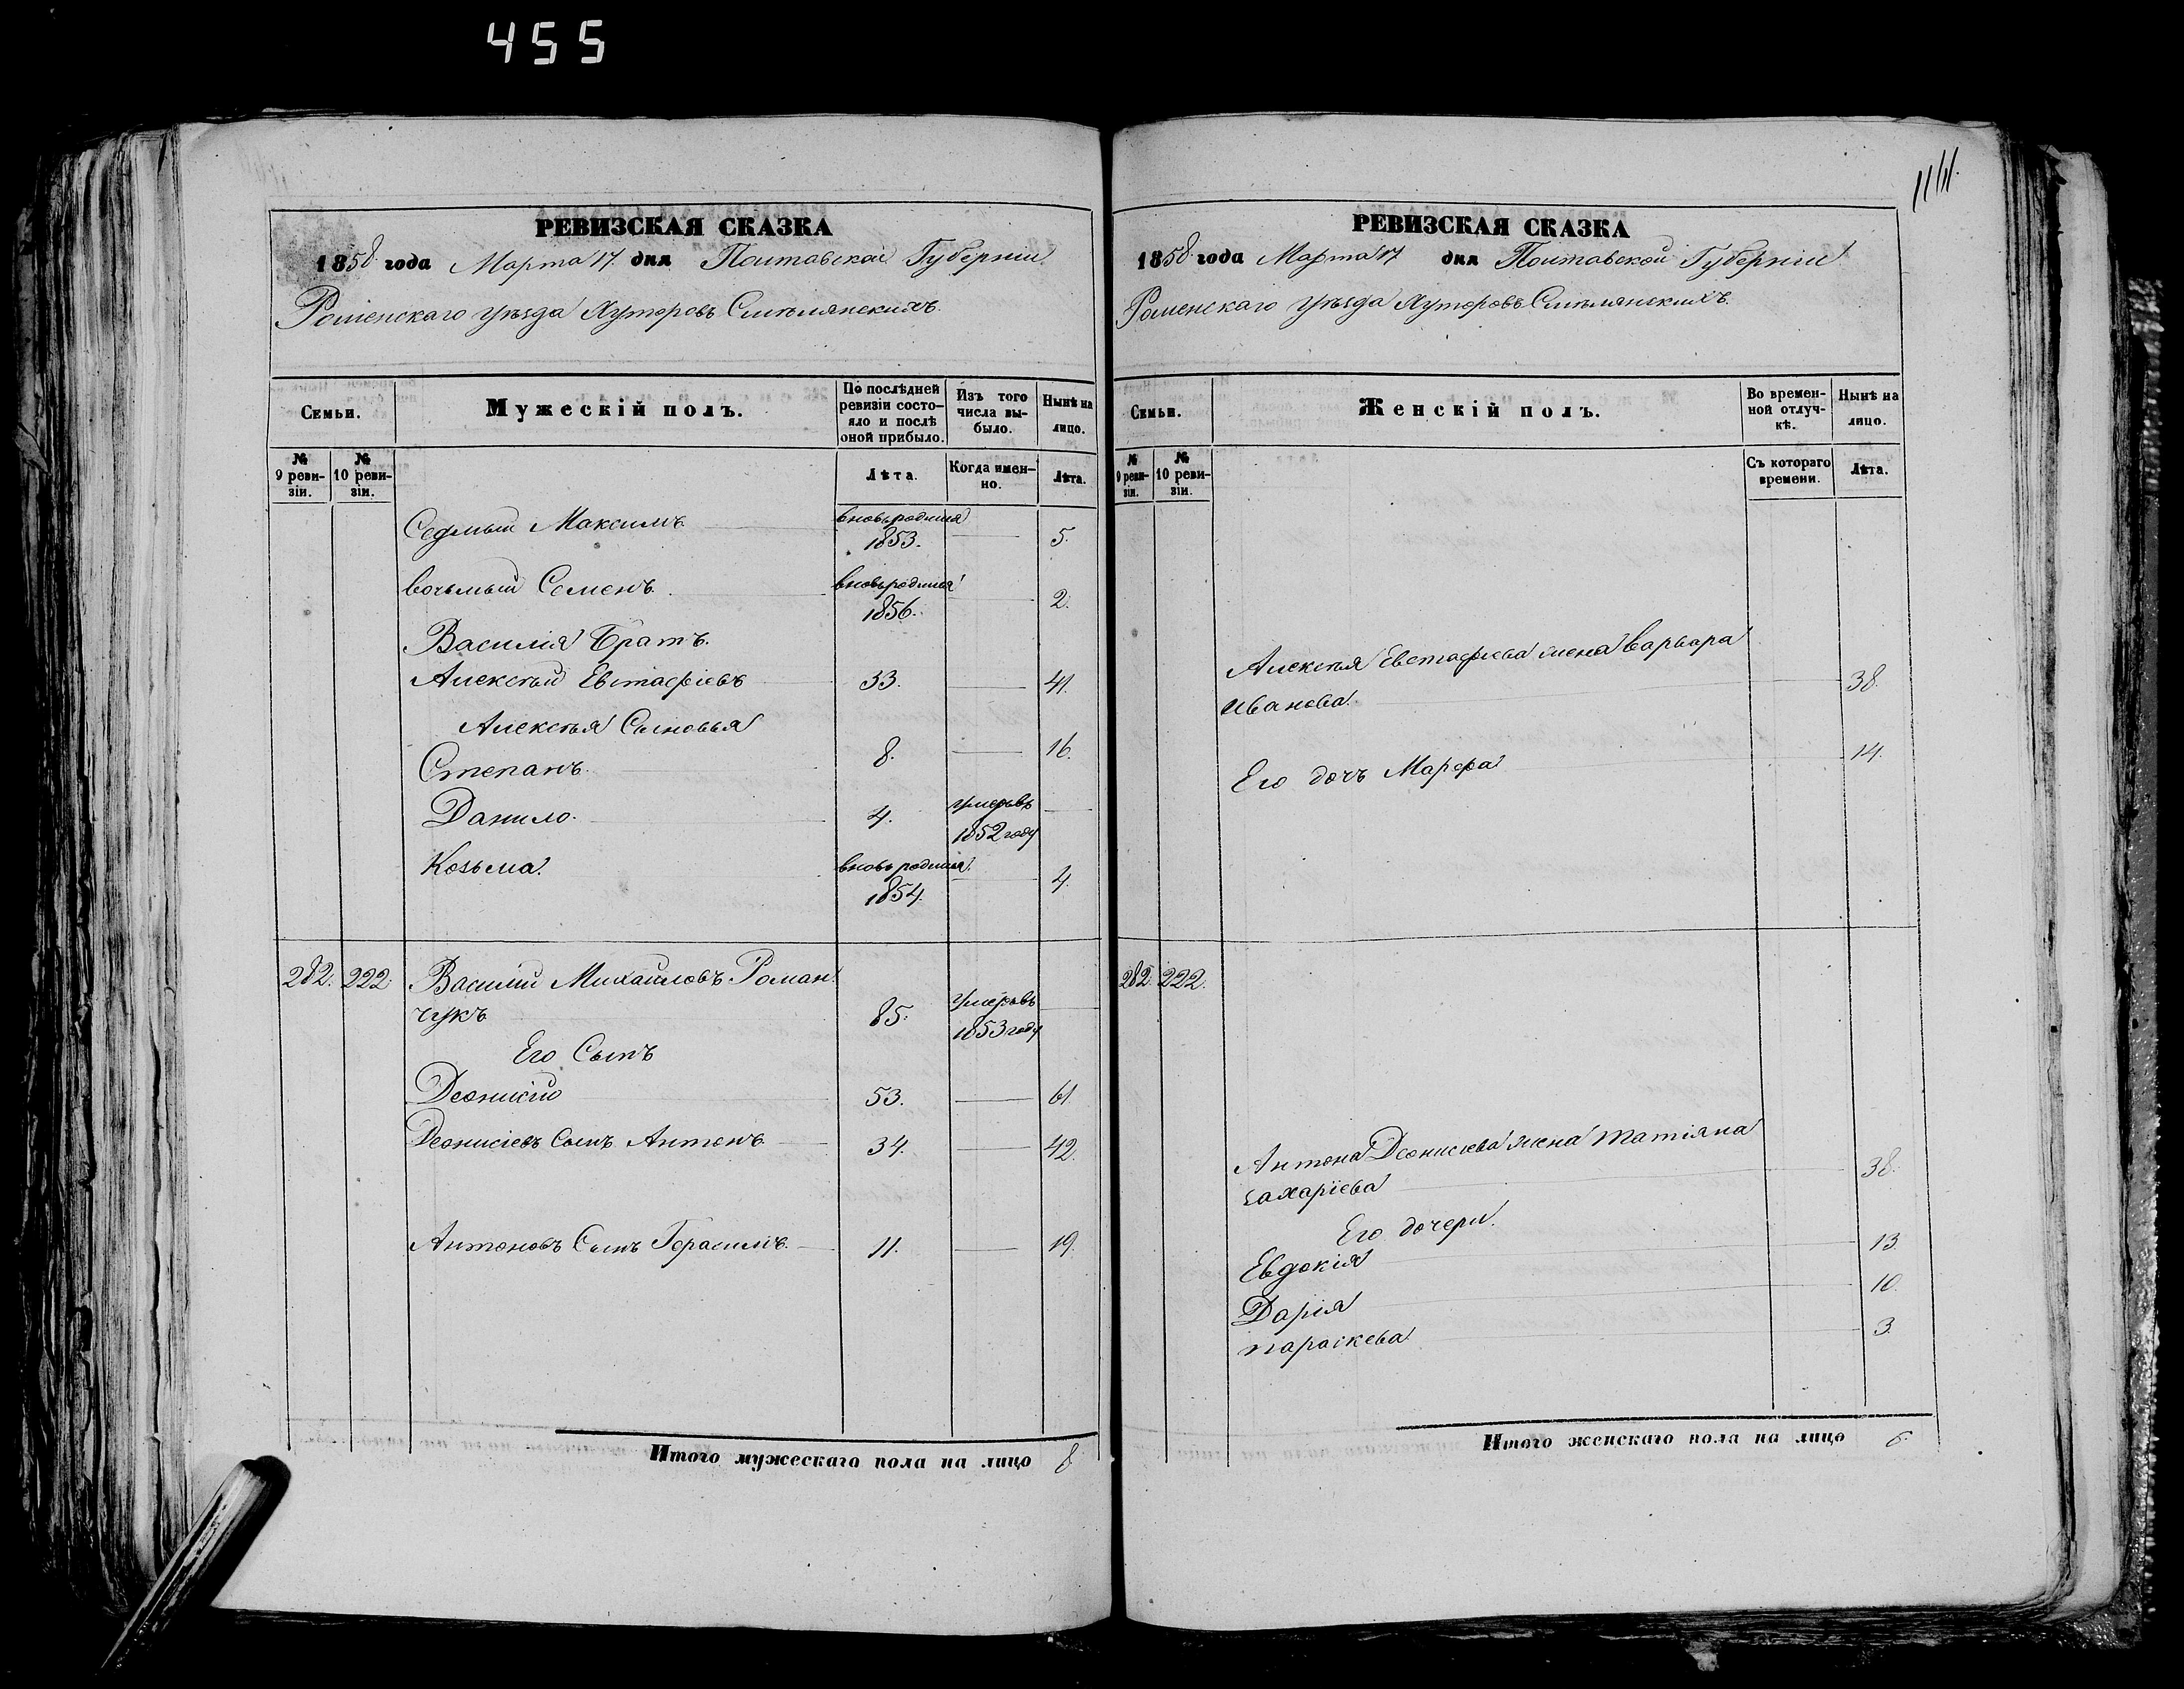 455
РЕВИЗСКАЯ СКАЗКА
1858 года Марта 17. дня Полтавской Губерніи
Роменскаго уѣзда Хуторовъ Смѣлянскихъ.
Семьи.
Мужескій полъ.
По послѣдней ревизіи состо-
яло и послѣ оной прибыло.
Изъ того числа вы-
было.
Нынѣ на лицо.
№ 9 реви-
зіи.
№ 10 реви-
зіи.
Лѣта.
Когда имен-
но.
Лѣта.
Седмый Максимъ вновьродился 1853. 5.
восьмый Семенъ вновьродился 1856. 2.
Василія Братъ.
Алексѣй Евстафіевъ 33. 41.
Алексѣя Сыновья
Степанъ. 8. 16.
Данило. 4. умеръвъ 1852 году
Козьма. вновь родился 1854. 4.
282. 222. Василій Михайловъ Роман
чукъ 85. умеръвъ 1853 году
Его Сынъ
Деонисій 53. 61
Деонисіевъ Сынъ Антонъ 34. 42.
Антоновъ Сынъ Герасимъ. 11. 19.
Итого мужескаго пола на лицо 8
РЕВИЗСКАЯ СКАЗКА
1858 года Марта 17 дня Полтавской Губерніи
Роменскаго уѣзда Хуторовъ Смѣлянскихъ.
Семьи.
Женскій полъ.
Во времен-
ной отлуч-
кѣ.
Нынѣ на лицо.
№ 9 реви-
зіи.
№ 10 реви-
зіи.
Съ котораго времени.
Лѣта.
Алексѣя Евстафіева жена Варвара
Иванова. 38.
Его дочъ Марфа 14.
282. 222.
Антона Деонисіева жена Татіяна
Захаріева 38.
Его дочери.
Евдокія 13.
Дарія 10.
параскева. 3.
Итого женскаго пола на лицо 6.